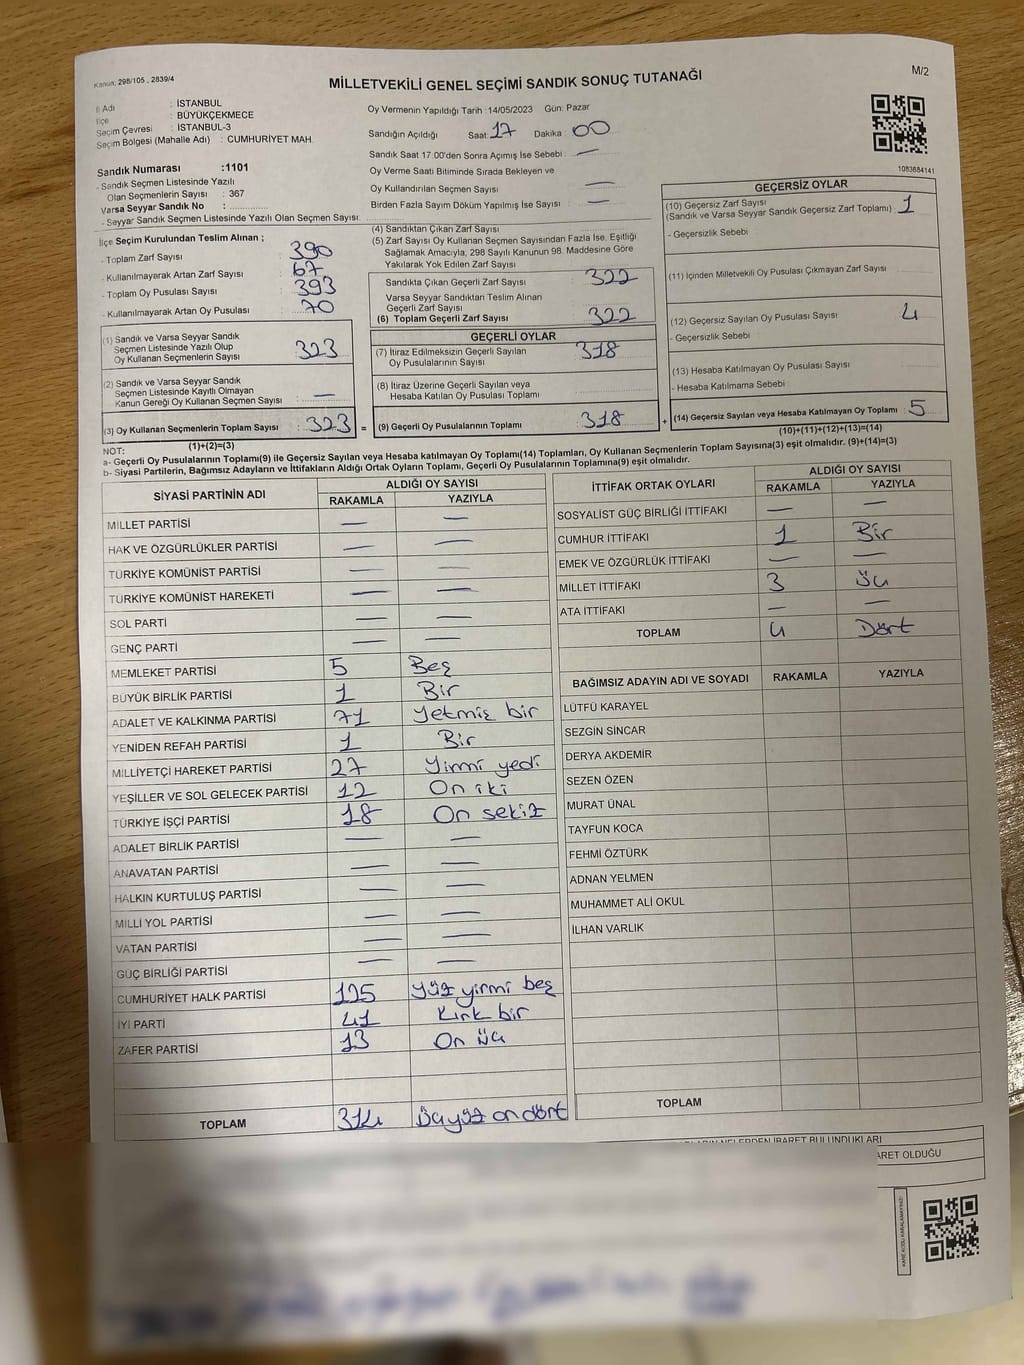 Kanun: 298/105 , 2839/4
MİLLETVEKİLİ GENEL SEÇİMİ SANDIK SONUÇ TUTANAĞI
M/2
İl Adı : İSTANBUL
İlçe : BÜYÜKÇEKMECE
Seçim Çevresi : İSTANBUL-3
Seçim Bölgesi (Mahalle Adı) : CUMHURİYET MAH.
Oy Vermenin Yapıldığı Tarih :14/05/2023 Gün: Pazar
Sandığın Açıldığı Saat: 17 Dakika : 00
Sandık Saat 17:00'den Sonra Açımış İse Sebebi : —
Oy Verme Saati Bitiminde Sırada Bekleyen ve
Oy Kullandırılan Seçmen Sayısı —
Birden Fazla Sayım Döküm Yapılmış İse Sayısı : —
1083684141
Sandık Numarası :1101
- Sandık Seçmen Listesinde Yazılı
Olan Seçmenlerin Sayısı : 367
Varsa Seyyar Sandık No :
- Seyyar Sandık Seçmen Listesinde Yazılı Olan Seçmen Sayısı:
İlçe Seçim Kurulundan Teslim Alınan ;
- Toplam Zarf Sayısı : 390
- Kullanılmayarak Artan Zarf Sayısı : 67
- Toplam Oy Pusulası Sayısı : 393
- Kullanılmayarak Artan Oy Pusulası : 70
(1) Sandık ve Varsa Seyyar Sandık
Seçmen Listesinde Yazılı Olup
Oy Kullanan Seçmenlerin Sayısı : 323
(2) Sandık ve Varsa Seyyar Sandık
Seçmen Listesinde Kayıtlı Olmayan
Kanun Gereği Oy Kullanan Seçmen Sayısı : —
(3) Oy Kullanan Seçmenlerin Toplam Sayısı : 323 =
(1)+(2)=(3)
(4) Sandıktan Çıkan Zarf Sayısı :
(5) Zarf Sayısı Oy Kullanan Seçmen Sayısından Fazla İse, Eşitliği
Sağlamak Amacıyla, 298 Sayılı Kanunun 98. Maddesine Göre
Yakılarak Yok Edilen Zarf Sayısı
Sandıkta Çıkan Geçerli Zarf Sayısı : 322
Varsa Seyyar Sandıktan Teslim Alınan
Geçerli Zarf Sayısı :
(6) Toplam Geçerli Zarf Sayısı : 322
GEÇERLİ OYLAR
(7) İtiraz Edilmeksizin Geçerli Sayılan
Oy Pusulalarının Sayısı : 318
(8) İtiraz Üzerine Geçerli Sayılan veya
Hesaba Katılan Oy Pusulası Toplamı :
(9) Geçerli Oy Pusulalarının Toplamı : 318 +
GEÇERSİZ OYLAR
(10) Geçersiz Zarf Sayısı : 1
(Sandık ve Varsa Seyyar Sandık Geçersiz Zarf Toplamı)
- Geçersizlik Sebebi :
(11) İçinden Milletvekili Oy Pusulası Çıkmayan Zarf Sayısı :
(12) Geçersiz Sayılan Oy Pusulası Sayısı : 4
- Geçersizlik Sebebi :
(13) Hesaba Katılmayan Oy Pusulası Sayısı :
- Hesaba Katılmama Sebebi :
(14) Geçersiz Sayılan veya Hesaba Katılmayan Oy Toplamı : 5
(10)+(11)+(12)+(13)=(14)
NOT:
a- Geçerli Oy Pusulaları Toplamı(9) ile Geçersiz Sayılan veya Hesaba katılmayan Oy Toplamı(14) Toplamları, Oy Kullanan Seçmenlerin Toplam Sayısına(3) eşit olmalıdır. (9)+(14)=(3)
b- Siyasi Partilerin, Bağımsız Adayların ve İttifakların Aldığı Ortak Oyların Toplamı, Geçerli Oy Pusulalarının Toplamına(9) eşit olmalıdır.
SİYASİ PARTİNİN ADI ALDIĞI OY SAYISI
RAKAMLA YAZIYLA
MİLLET PARTİSİ — —
HAK VE ÖZGÜRLÜKLER PARTİSİ — —
TÜRKİYE KOMÜNİST PARTİSİ — —
TÜRKİYE KOMÜNİST HAREKETİ — —
SOL PARTİ — —
GENÇ PARTİ — —
MEMLEKET PARTİSİ 5 Beş
BÜYÜK BİRLİK PARTİSİ 1 Bir
ADALET VE KALKINMA PARTİSİ 71 Yetmiş bir
YENİDEN REFAH PARTİSİ 1 Bir
MİLLİYETÇİ HAREKET PARTİSİ 27 Yirmi yedi
YEŞİLLER VE SOL GELECEK PARTİSİ 12 On iki
TÜRKİYE İŞÇİ PARTİSİ 18 On sekiz
ADALET BİRLİK PARTİSİ — —
ANAVATAN PARTİSİ — —
HALKIN KURTULUŞ PARTİSİ — —
MİLLİ YOL PARTİSİ — —
VATAN PARTİSİ — —
GÜÇ BİRLİĞİ PARTİSİ — —
CUMHURİYET HALK PARTİSİ 125 Yüz yirmi beş
İYİ PARTİ 41 Kırk bir
ZAFER PARTİSİ 13 On üç
TOPLAM 314 Üçyüz on dört
İTTİFAK ORTAK OYLARI ALDIĞI OY SAYISI
RAKAMLA YAZIYLA
SOSYALİST GÜÇ BİRLİĞİ İTTİFAKI — —
CUMHUR İTTİFAKI 1 Bir
EMEK VE ÖZGÜRLÜK İTTİFAKI — —
MİLLET İTTİFAKI 3 Üç
ATA İTTİFAKI — —
TOPLAM 4 Dört
BAĞIMSIZ ADAYIN ADI VE SOYADI RAKAMLA YAZIYLA
LÜTFÜ KARAYEL
SEZGİN SİNCAR
DERYA AKDEMİR
SEZEN ÖZEN
MURAT ÜNAL
TAYFUN KOCA
FEHMİ ÖZTÜRK
ADNAN YELMEN
MUHAMMET ALİ OKUL
İLHAN VARLIK
TOPLAM
NELERDEN İBARET BULUNDUKLARI
ARET OLDUĞU